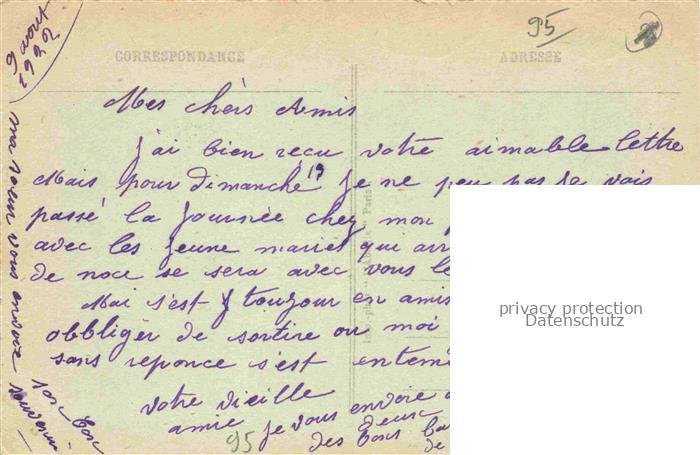 9 aout
1922
95
CORRESPONDANCE
ADRESSE
Mes chèrs Amis
J'ai bien reçu votre aimable lettre
Mais pour dimanche 13 je ne peu pas je vais
passé la journée chez mon
avec les jeune mariet qui arr
de noce se sera avec vous le
Mai s'est toujour en amis
obbliger de sortire ou moi
sans reponce s'est entem
votre vieille
amie je vous envoie
deux
des
de
95
ma soeur vous envoie
son bon
souvenir
Paris
privacy protection
Datenschutz